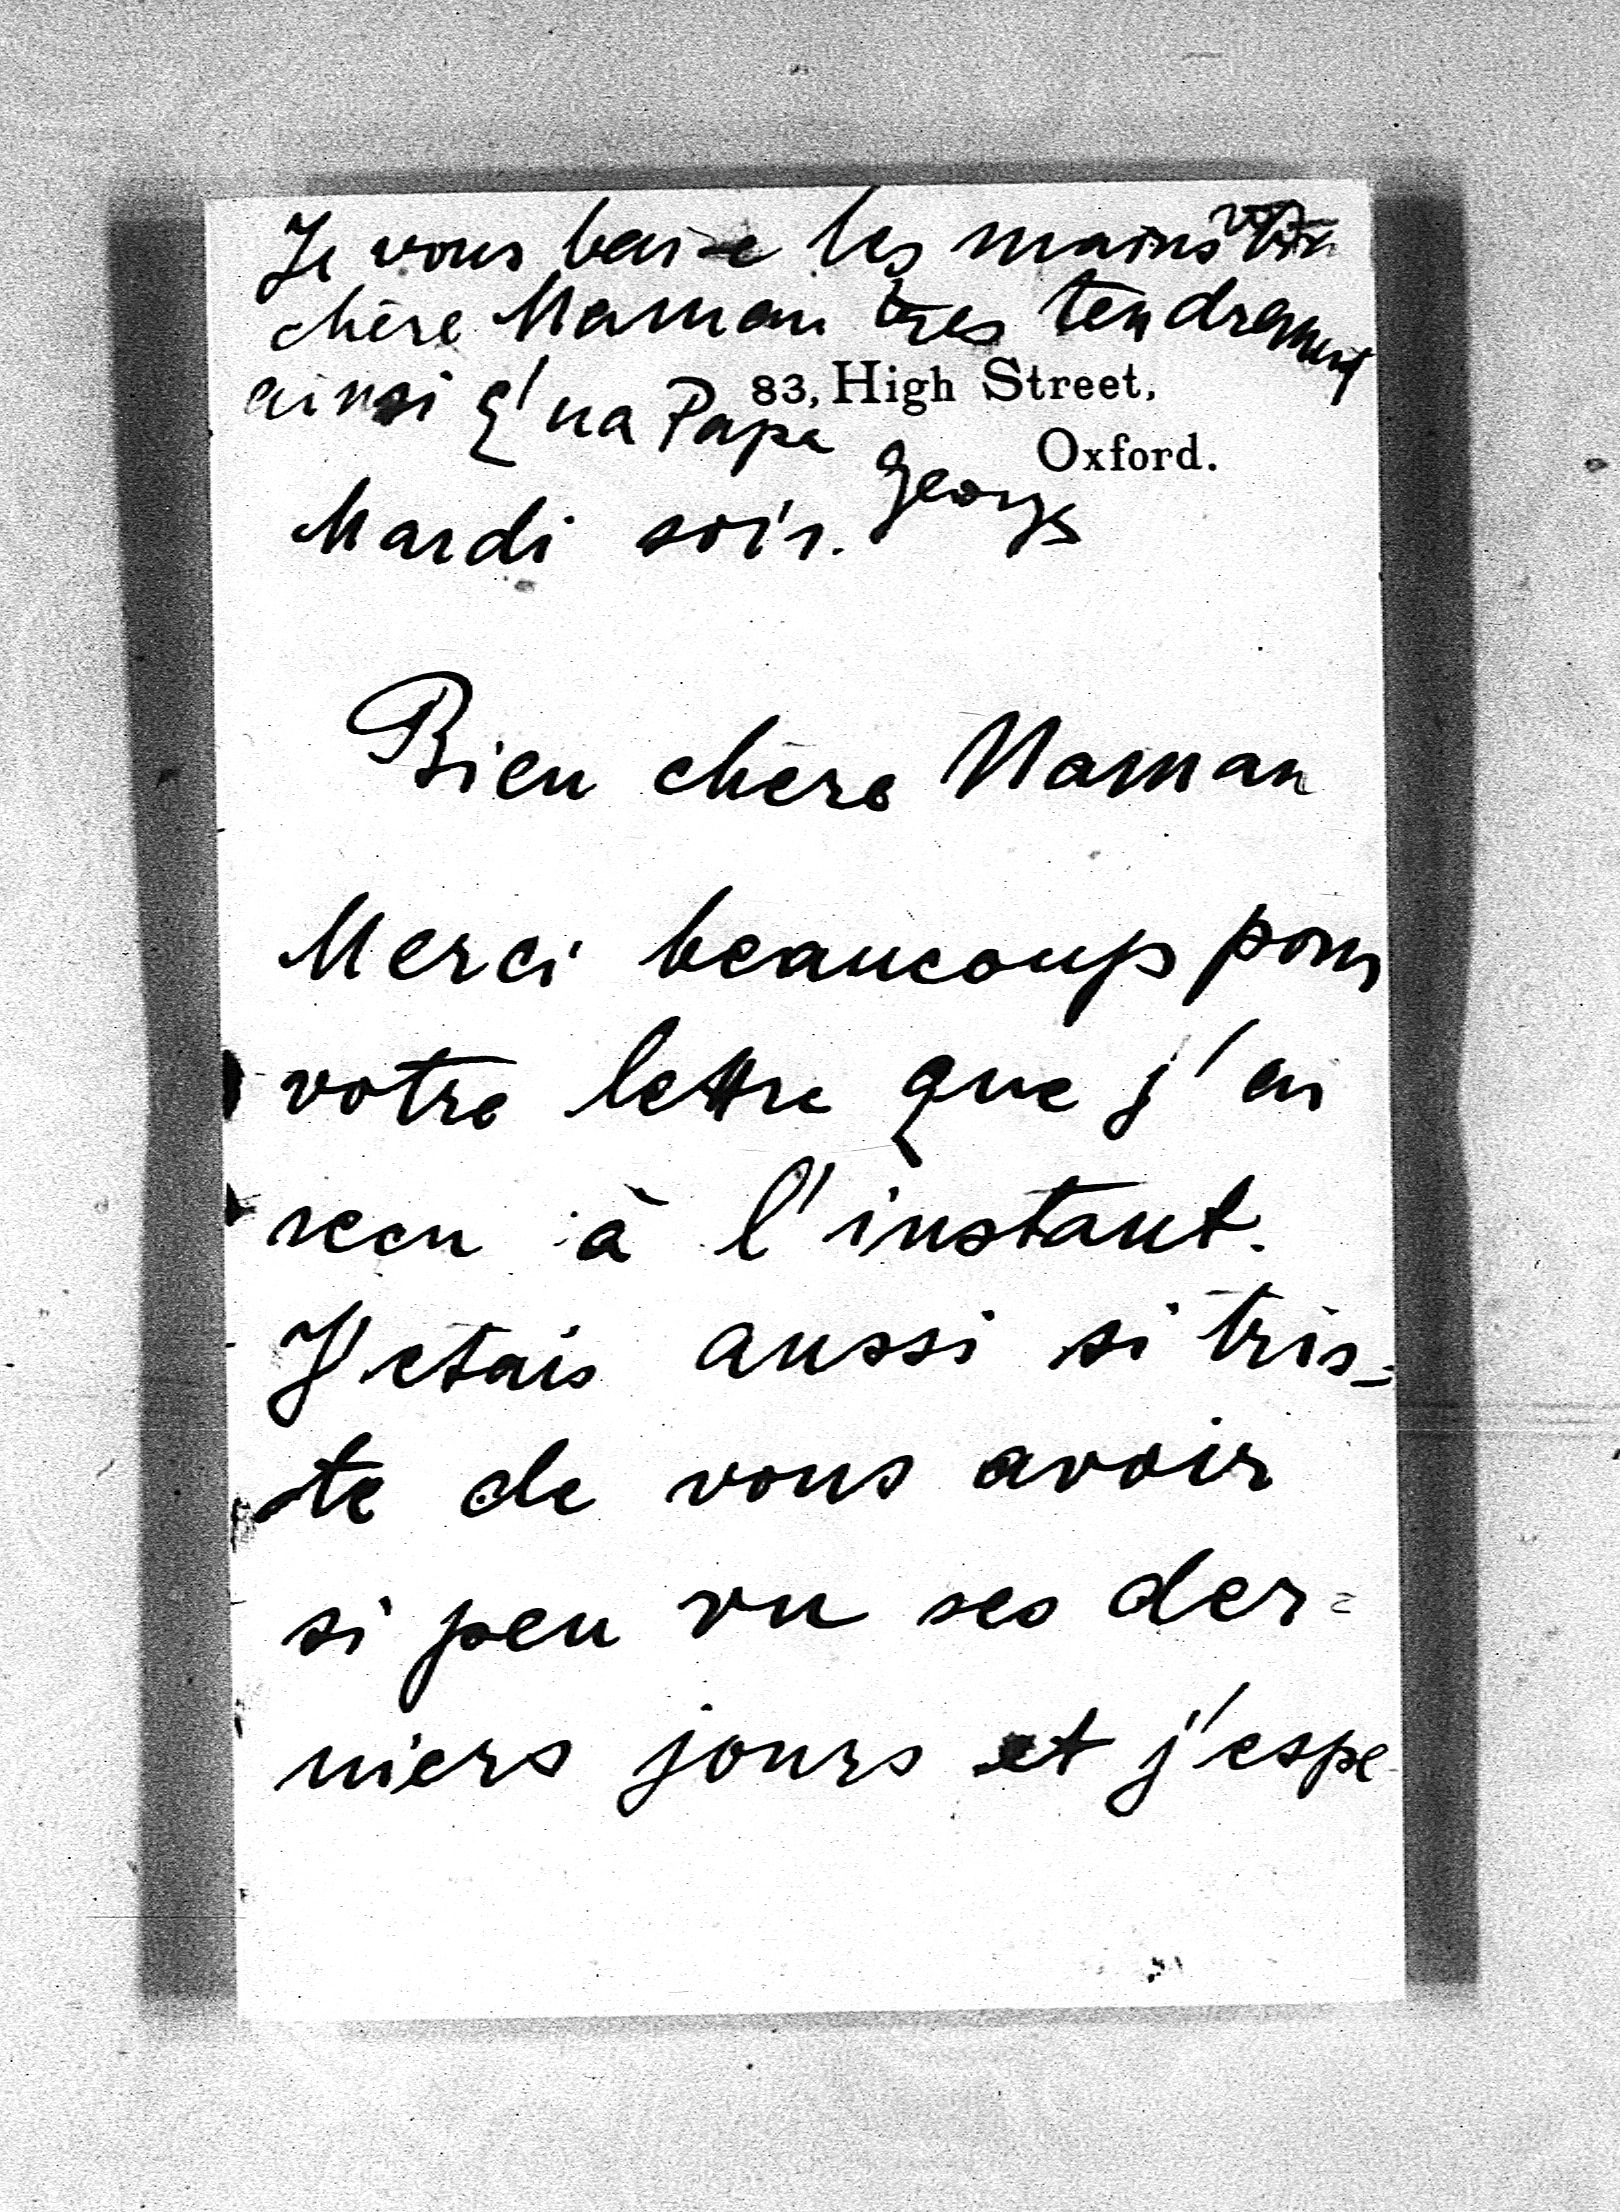 Je vous baise les mains
chère Maman très tendrement
ainsi q'ua Papa
83, High Street,
Oxford.
Georges
Mardi soir.
Bien chère Maman
Merci beaucoup pour
votre lettre que j'ai
recu à l'instant.
J'etais aussi si tris-
te de vous avoir
si peu vu ses der-
niers jours et j'espe-